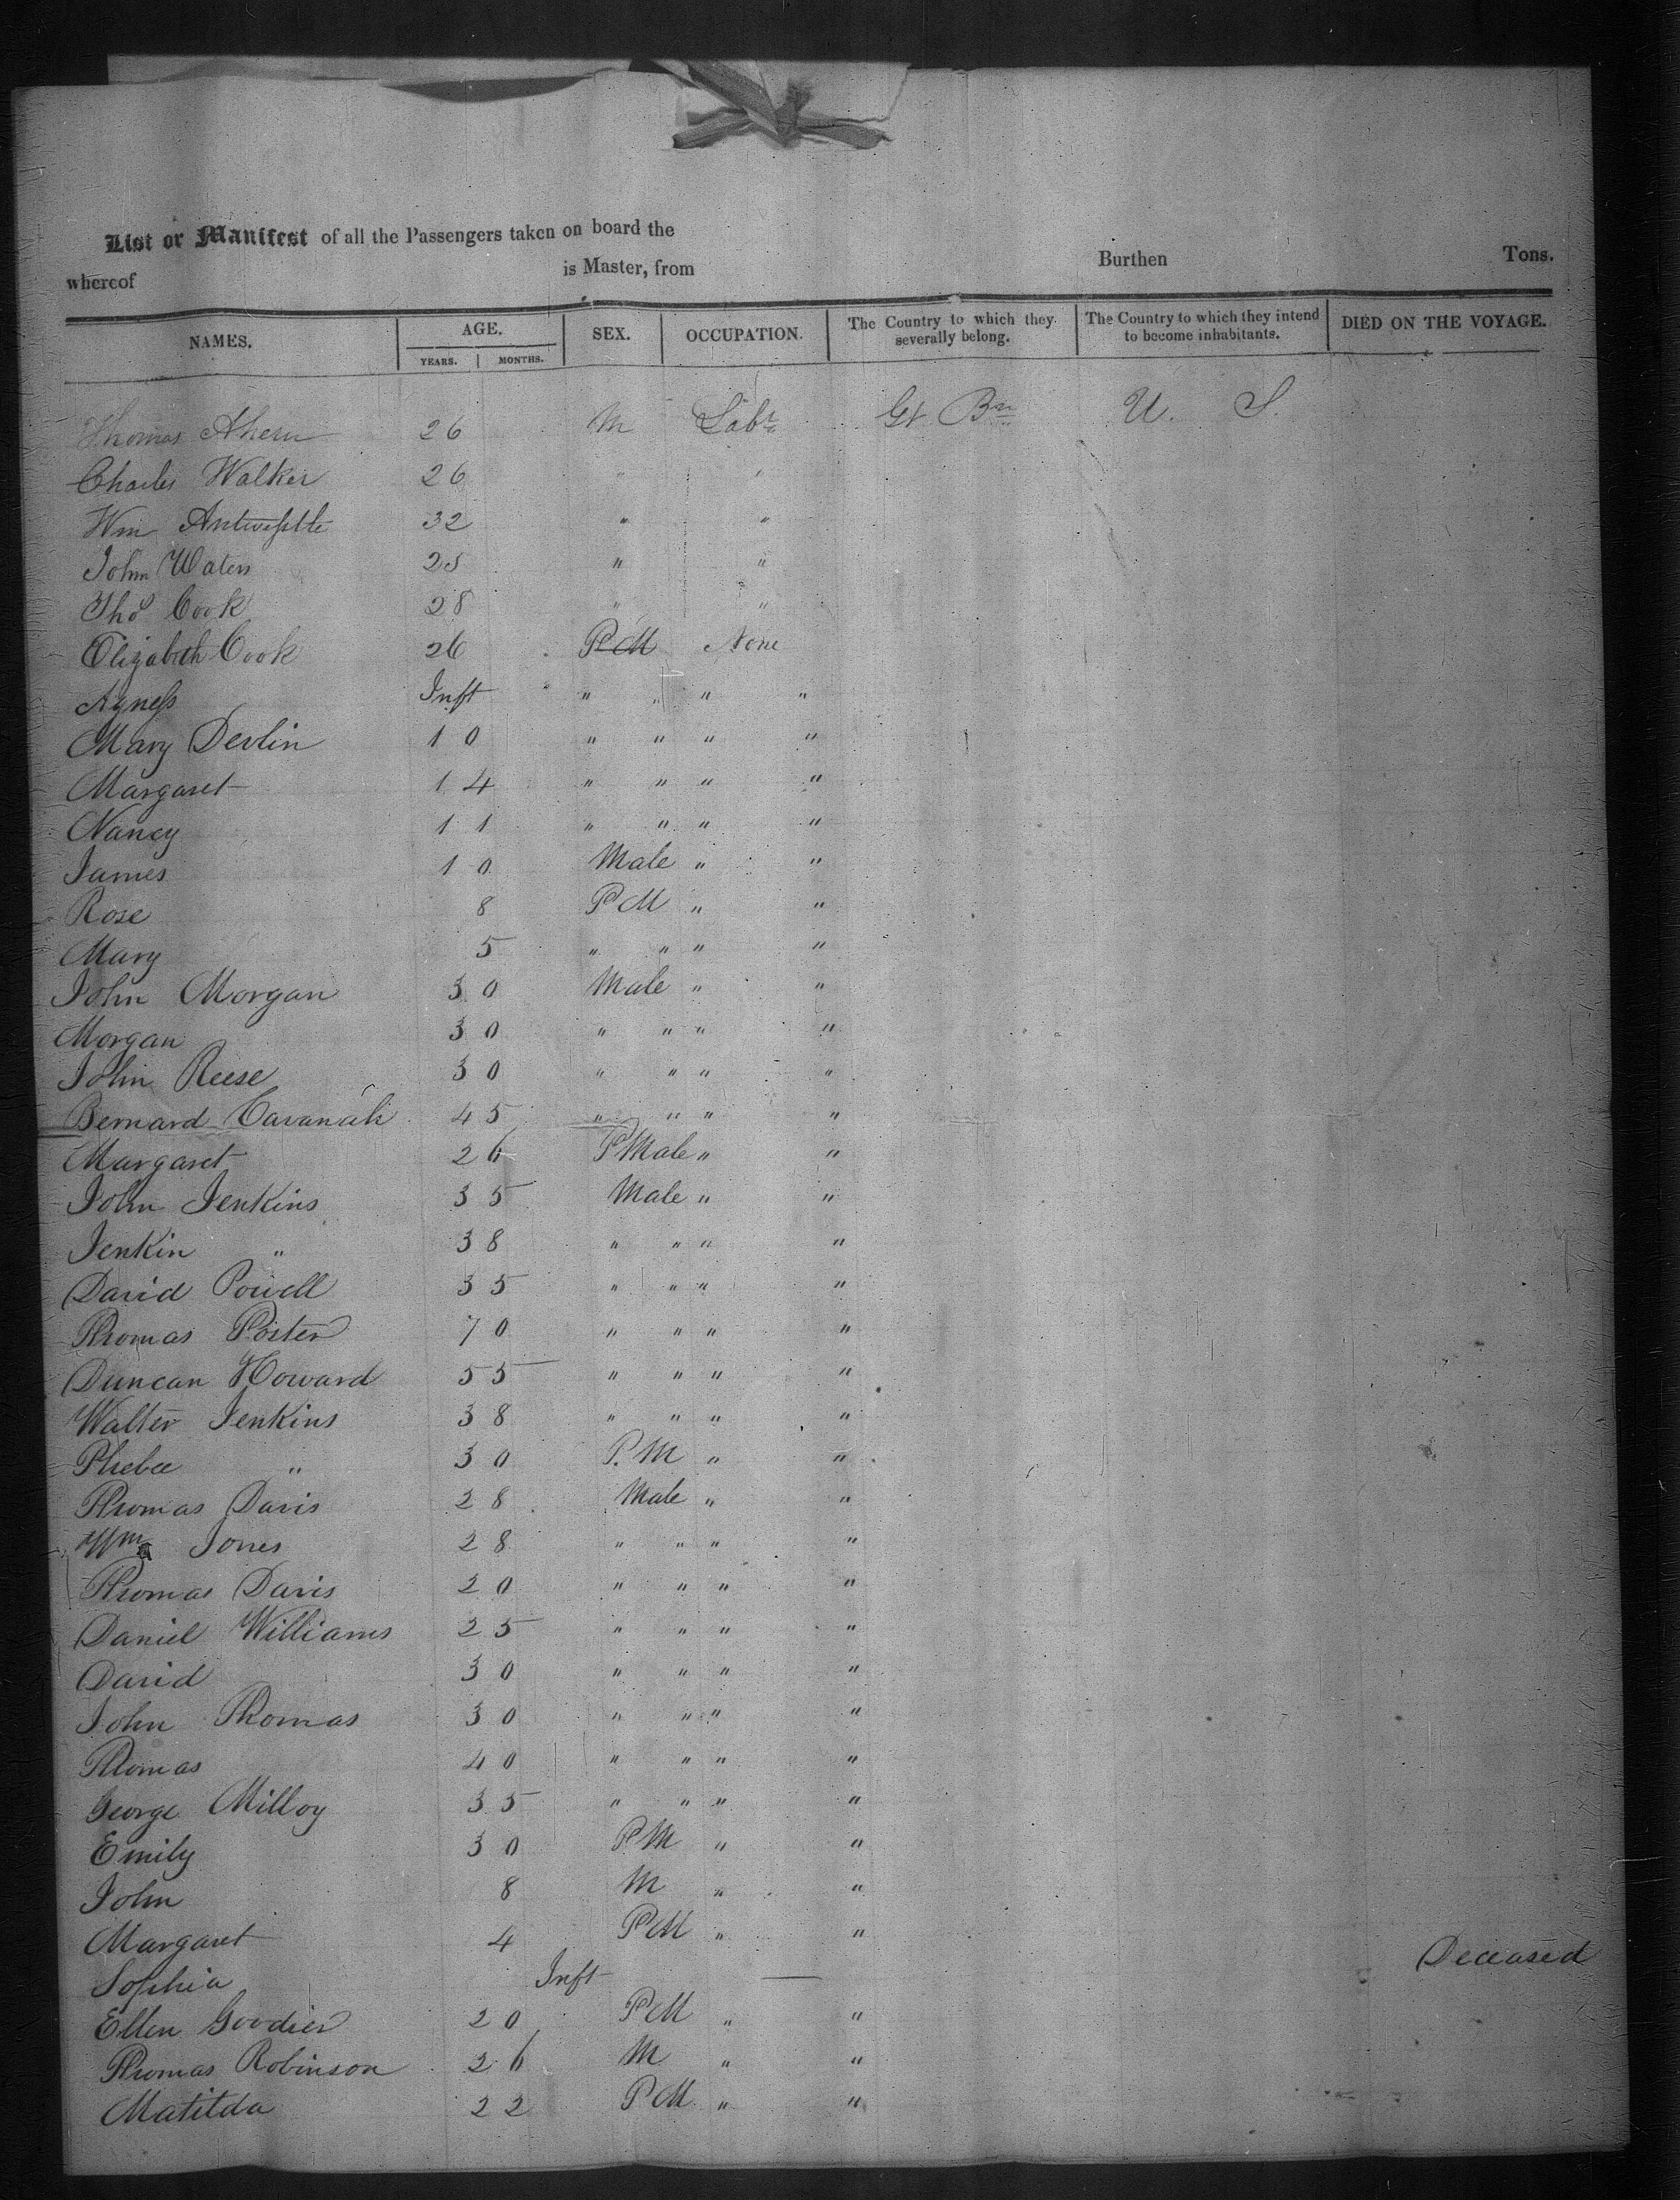 List or Manifest of all the Passengers taken on board the
Burthen Tons.
whereof is Master, from
NAMES. AGE. SEX. OCCUPATION. The Country to which they severally belong. The Country to which they intend to become inhabitants. DIED ON THE VOYAGE.
YEARS. MONTHS.
Thomas Ahern 26 M Labr Gt Bn U. S.
Charles Walker 26 " "
Wm 32 " "
John Waters 25 " "
Thos Cook 28 " "
Elizabeth Cook 26 F M None
Agness Inft " " " "
Mary Devlin 10 " " " "
Margaret 14 " " " "
Nancy 11 " " " "
James 10 Male " "
Rose 8 F M " "
Mary 5 " " " "
John Morgan 30 Male " "
Morgan 30 " " " "
John Reese 30 " " " "
Bernard Cavanah 45 " " " "
Margaret 26 F Male " "
John Jenkins 35 Male " "
Jenkin " 38 " " " "
David Powell 35 " " " "
Thomas Foster 70 " " " "
Duncan Howard 55 " " " "
Walter Jenkins 38 " " " "
Phebee " 30 F. M " "
Thomas Davis 28 Male " "
Wm Jones 28 " " " "
Thomas Davis 20 " " " "
Daniel Williams 25 " " " "
David 30 " " " "
John Thomas 30 " " " "
Thomas 40 " " " "
George Milloy 35 " " " "
Emily 30 F M " "
John 8 M " "
Margaret 4 F M " "
Sophia Inft — Deceased
Ellen Goodier 20 F M " "
Thomas Robinson 26 M " "
Matilda 22 F M " "